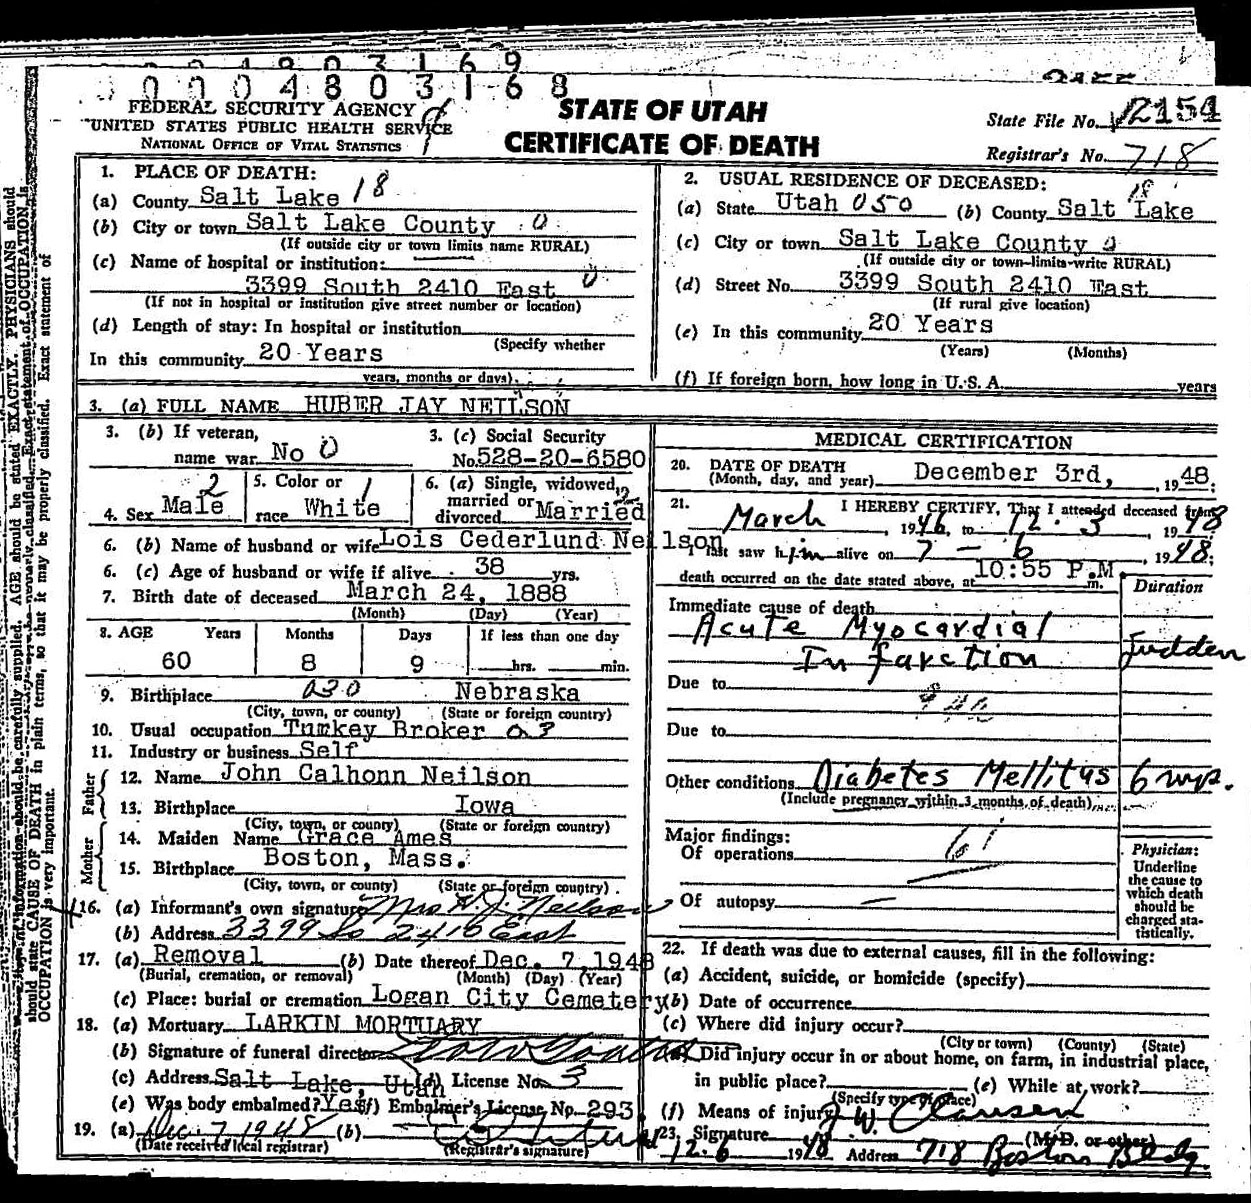 0 0 0 4 8 0 3 1 6 8
FEDERAL SECURITY AGENCY
UNITED STATES PUBLIC HEALTH SERVICE
NATIONAL OFFICE OF VITAL STATISTICS
STATE OF UTAH
CERTIFICATE OF DEATH
State File No. 12154
Registrar's No. 718
1. PLACE OF DEATH:
(a) County Salt Lake 18
(b) City or town Salt Lake County 0
(If outside city or town limits name RURAL)
(c) Name of hospital or institution:
3399 South 2410 East 0
(If not in hospital or institution give street number or location)
(d) Length of stay: In hospital or institution
(Specify whether
In this community 20 Years
years, months or days)
2. USUAL RESIDENCE OF DECEASED:
(a) State Utah 050 (b) County Salt Lake 18
(c) City or town Salt Lake County 0
(If outside city or town-limits-write RURAL)
(d) Street No. 3399 South 2410 East
(If rural give location)
(e) In this community 20 Years
(Years) (Months)
(f) If foreign born, how long in U.S.A. years
3. (a) FULL NAME HUBER JAY NEILSON
3. (b) If veteran, name war No 0
3. (c) Social Security No. 528-20-6580
4. Sex Male 2
5. Color or race White 1
6. (a) Single, widowed, married or divorced Married
6. (b) Name of husband or wife Lois Cederlund Neilson
6. (c) Age of husband or wife if alive 38 yrs.
7. Birth date of deceased March 24, 1888
(Month) (Day) (Year)
8. AGE Years Months Days If less than one day
60 8 9 hrs. min.
9. Birthplace 030 Nebraska
(City, town, or county) (State or foreign country)
10. Usual occupation Turkey Broker 03
11. Industry or business Self
Father
12. Name John Calhonn Neilson
13. Birthplace Iowa
(City, town, or county) (State or foreign country)
Mother
14. Maiden Name Grace Ames
15. Birthplace Boston, Mass.
(City, town, or county) (State or foreign country)
16. (a) Informant's own signature Mrs H. J. Neilson
(b) Address 3399 So 2410 East
17. (a) Removal (b) Date thereof Dec. 7 1948
(Burial, cremation, or removal) (Month) (Day) (Year)
(c) Place: burial or cremation Logan City Cemetery
18. (a) Mortuary LARKIN MORTUARY
(b) Signature of funeral director
(c) Address Salt Lake, Utah (d) License No. 3
(e) Was body embalmed? Yes (f) Embalmer's License No. 293
19. (a) Dec. 7 1948 (b)
(Date received local registrar) (Registrar's signature)
MEDICAL CERTIFICATION
20. DATE OF DEATH
(Month, day, and year) December 3rd, 1948;
21. I HEREBY CERTIFY, That I attended deceased from
March 1946, to 12-3 1948
I last saw him alive on 7-6 1948;
death occurred on the date stated above, at 10:55 P.M. m.
Duration
Immediate cause of death
Acute Myocardial
Infarction Sudden
Due to
Due to
Other conditions Diabetes Mellitus
(Include pregnancy within 3 months of death)
Major findings:
Of operations 61
Of autopsy –
Physician:
Underline
the cause to
which death
should be
charged sta-
tistically.
22. If death was due to external causes, fill in the following:
(a) Accident, suicide, or homicide (specify)
(b) Date of occurrence
(c) Where did injury occur?
(City or town) (County) (State)
(d) Did injury occur in or about home, on farm, in industrial place,
in public place? (e) While at work?
(Specify type of place)
(f) Means of injury
23. Signature J. W. Clausen
(M.D. or other)
12-6 1948 Address 718 Boston Bldg.